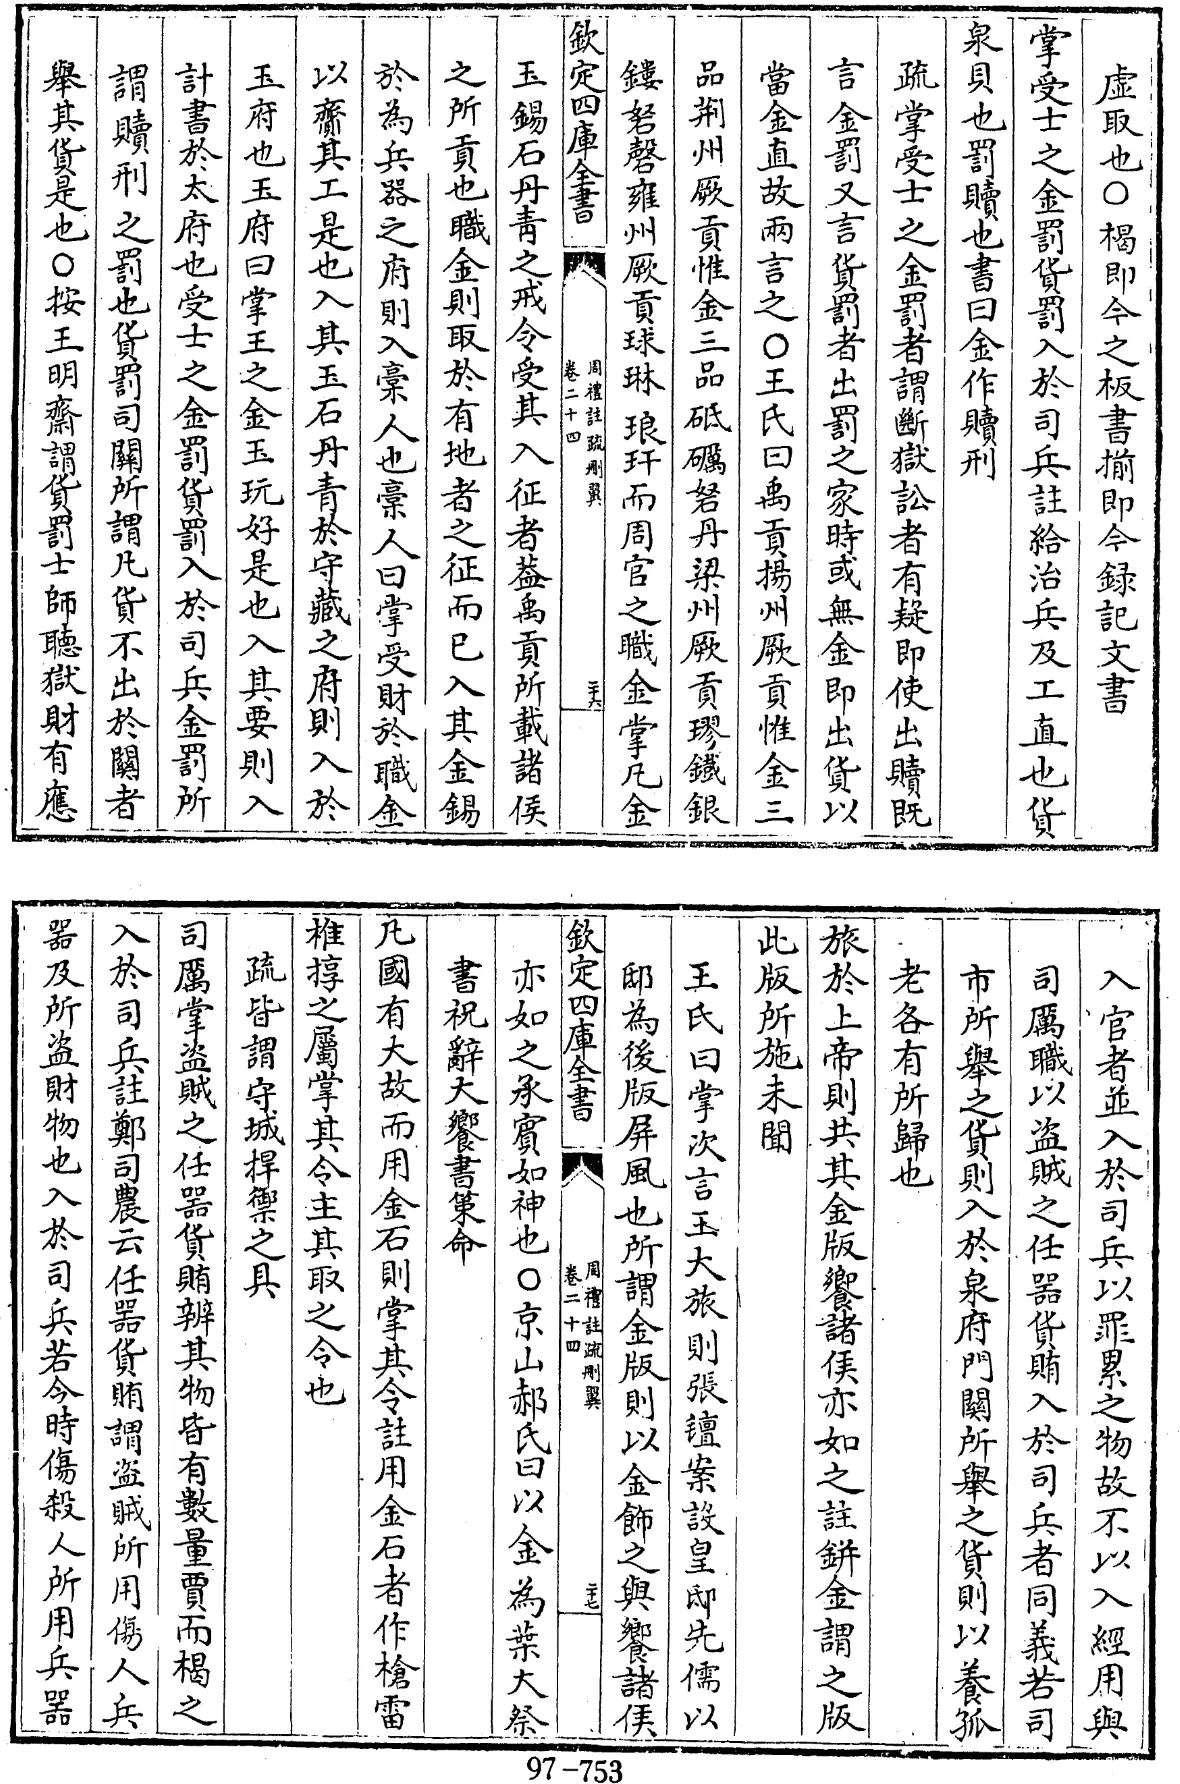 虛取也〇楬即今之板書揃即今録記文書
掌受士之金罰貨罰入於司兵註給治兵及工直也貨
泉貝也罰贖也書曰金作贖刑
疏掌受士之金罰者謂斷獄訟者有疑即使出贖既
言金罰又言貨罰者出罰之家時或無金即出貨以
當金直故兩言之〇王氏曰禹貢揚州厥貢惟金三
品荆州厥貢惟金三品砥礪砮丹梁州厥貢璆鐵銀
鏤砮磬雍州厥貢球琳琅玕而周官之職金掌凡金
欽定四庫全書
周禮註疏刪翼
卷二十四
二十六
玉錫石丹青之戒令受其入征者葢禹貢所載諸侯
之所貢也職金則取於有地者之征而已入其金錫
於為兵器之府則入稾人也稾人曰掌受財於職金
以齎其工是也入其玉石丹青於守藏之府則入於
玉府也玉府曰掌王之金玉玩好是也入其要則入
計書於太府也受士之金罰貨罰入於司兵金罰所
謂贖刑之罰也貨罰司關所謂凡貨不出於關者
舉其貨是也〇按王明齋謂貨罰士師聽獄財有應
入官者並入於司兵以罪累之物故不以入經用與
司厲職以盜賊之任器貨賄入於司兵者同義若司
市所舉之貨則入於泉府門關所舉之貨則以養孤
老各有所歸也
旅於上帝則共其金版饗諸侯亦如之註鉼金謂之版
此版所施未聞
王氏曰掌次言王大旅則張氊案設皇邸先儒以
邸為後版屏風也所謂金版則以金飾之與饗諸侯
欽定四庫全書
周禮註疏刪翼
卷二十四
二十七
亦如之承賓如神也〇京山郝氏曰以金為葉大祭
書祝辭大饗書策命
凡國有大故而用金石則掌其令註用金石者作槍雷
椎椁之屬掌其令主其取之令也
疏皆謂守城捍禦之具
司厲掌盜賊之任器貨賄辨其物皆有數量賈而楬之
入於司兵註鄭司農云任器貨賄謂盜賊所用傷人兵
器及所盜財物也入於司兵若今時傷殺人所用兵器
97-753